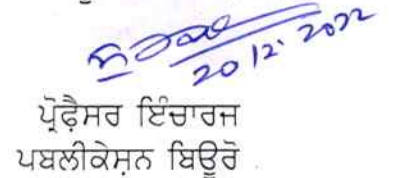 20 12. 2022
ਪ੍ਰੋਫ਼ੈਸਰ ਇੰਚਾਰਜ
ਪਬਲੀਕੇਸ਼ਨ ਬਿਊਰੋ